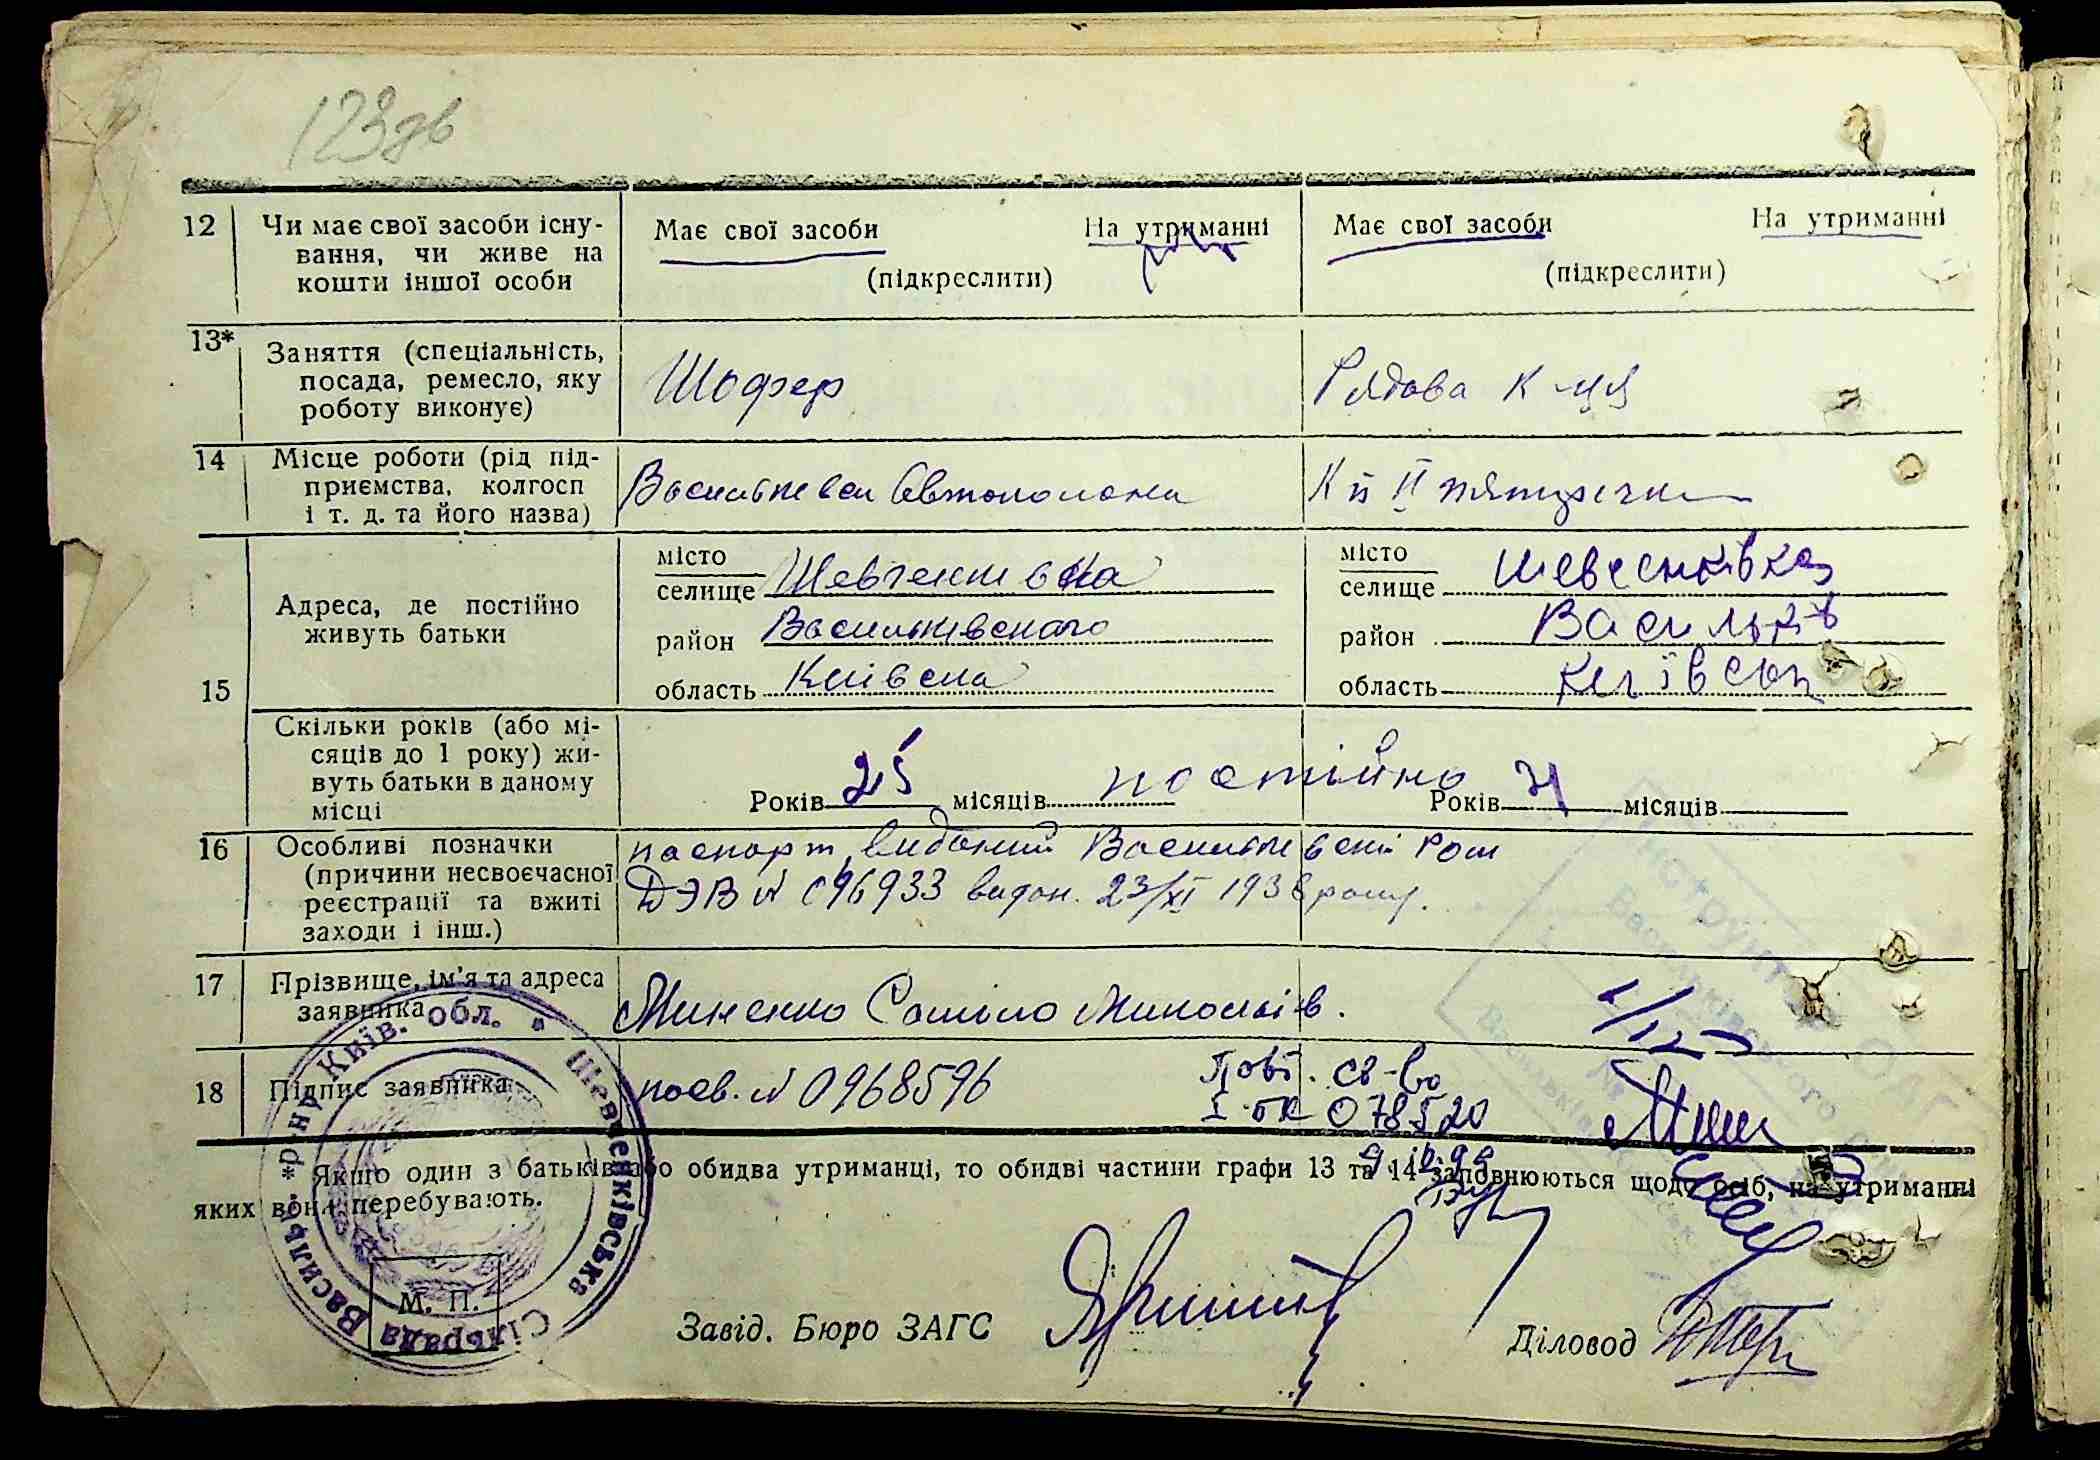 123зв
12 Чи має свої засоби існу-
вання, чи живе на
кошти іншої особи
Має свої засоби На утриманні
(підкреслити)
Має свої засоби На утриманні
(підкреслити)
13* Заняття (спеціальність,
посада, ремесло, яку
роботу виконує)
Шофер
Рядова к-ця
14 Місце роботи (рід під-
приємства, колгосп
і т. д. та його назва)
Васильківсь Автоколона
К-п ІІ пятирічки
15 Адреса, де постійно
живуть батьки
місто
селище Шевченківка
район Васильківського
область Київська
місто
селище Шевченківка
район Васильків
область Київськ
Скільки років (або мі-
сяців до 1 року) жи-
вуть батьки в даному
місці
Років 25 місяців постійно
Років 21 місяців
16 Особливі позначки
(причини несвоєчасної
реєстрації та вжиті
заходи і інш.)
паспорт виданий Васильківскі
ДЭВ № 096933 видан. 23/XI 1938 року.
17 Прізвище, ім'я та адреса
заявника
Миненко Самійло Миколаїв.
18 Підпис заявника
посв. № 0968596
Повт. св-во
078520
Якщо один з батьків або обидва утриманці, то обидві частини графи 13 та 14 заповнюються щодо осіб, на утриманні
яких вони перебувають.
М. П.
Завід. Бюро ЗАГС
Діловод
Шевченківська Сільрада Васильк. р-ну Київ. обл.